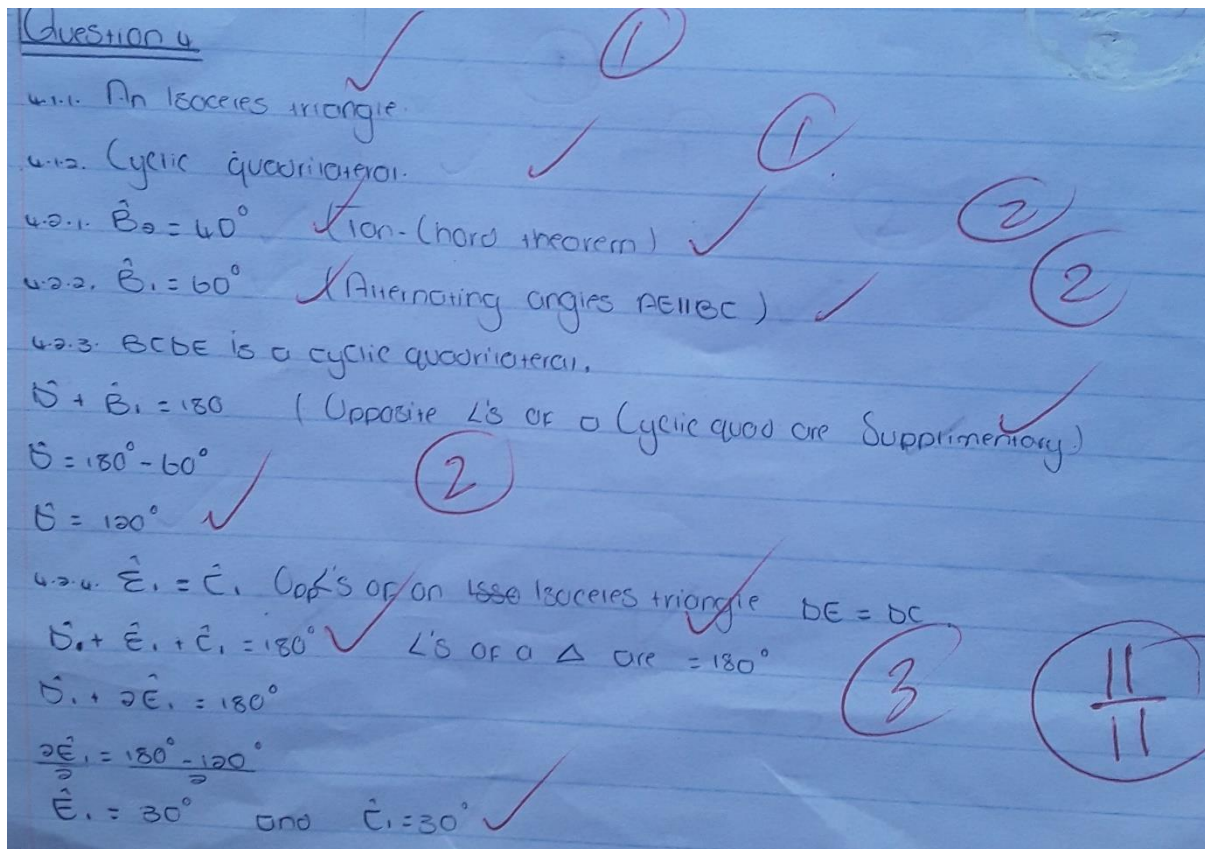 Question 4
①
4.1.1. An Isoceres triangle.
4.1.2. Cyclic quadrilateral.
①
4.2.1. B̂2 = 40° (Tan-Chord theorem)
②
4.2.2. B̂1 = 60° (Alternating angles AE||BC)
②
4.2.3. BCDE is a cyclic quadrilateral.
D̂ + B̂1 = 180 (Opposite ∠'s of a Cyclic quad are Supplimentary)
D̂ = 180° - 60°
②
D̂ = 120°
4.2.4. Ê1 = Ĉ1 Opp∠'s of an Isse Isoceres triangle DE = DC
D̂1 + Ê1 + Ĉ1 = 180° ∠'s of a △ are = 180°
③
11/11
D̂1 + 2Ê1 = 180°
2Ê1/2 = 180° - 120°/2
Ê1 = 30° and Ĉ1 = 30°